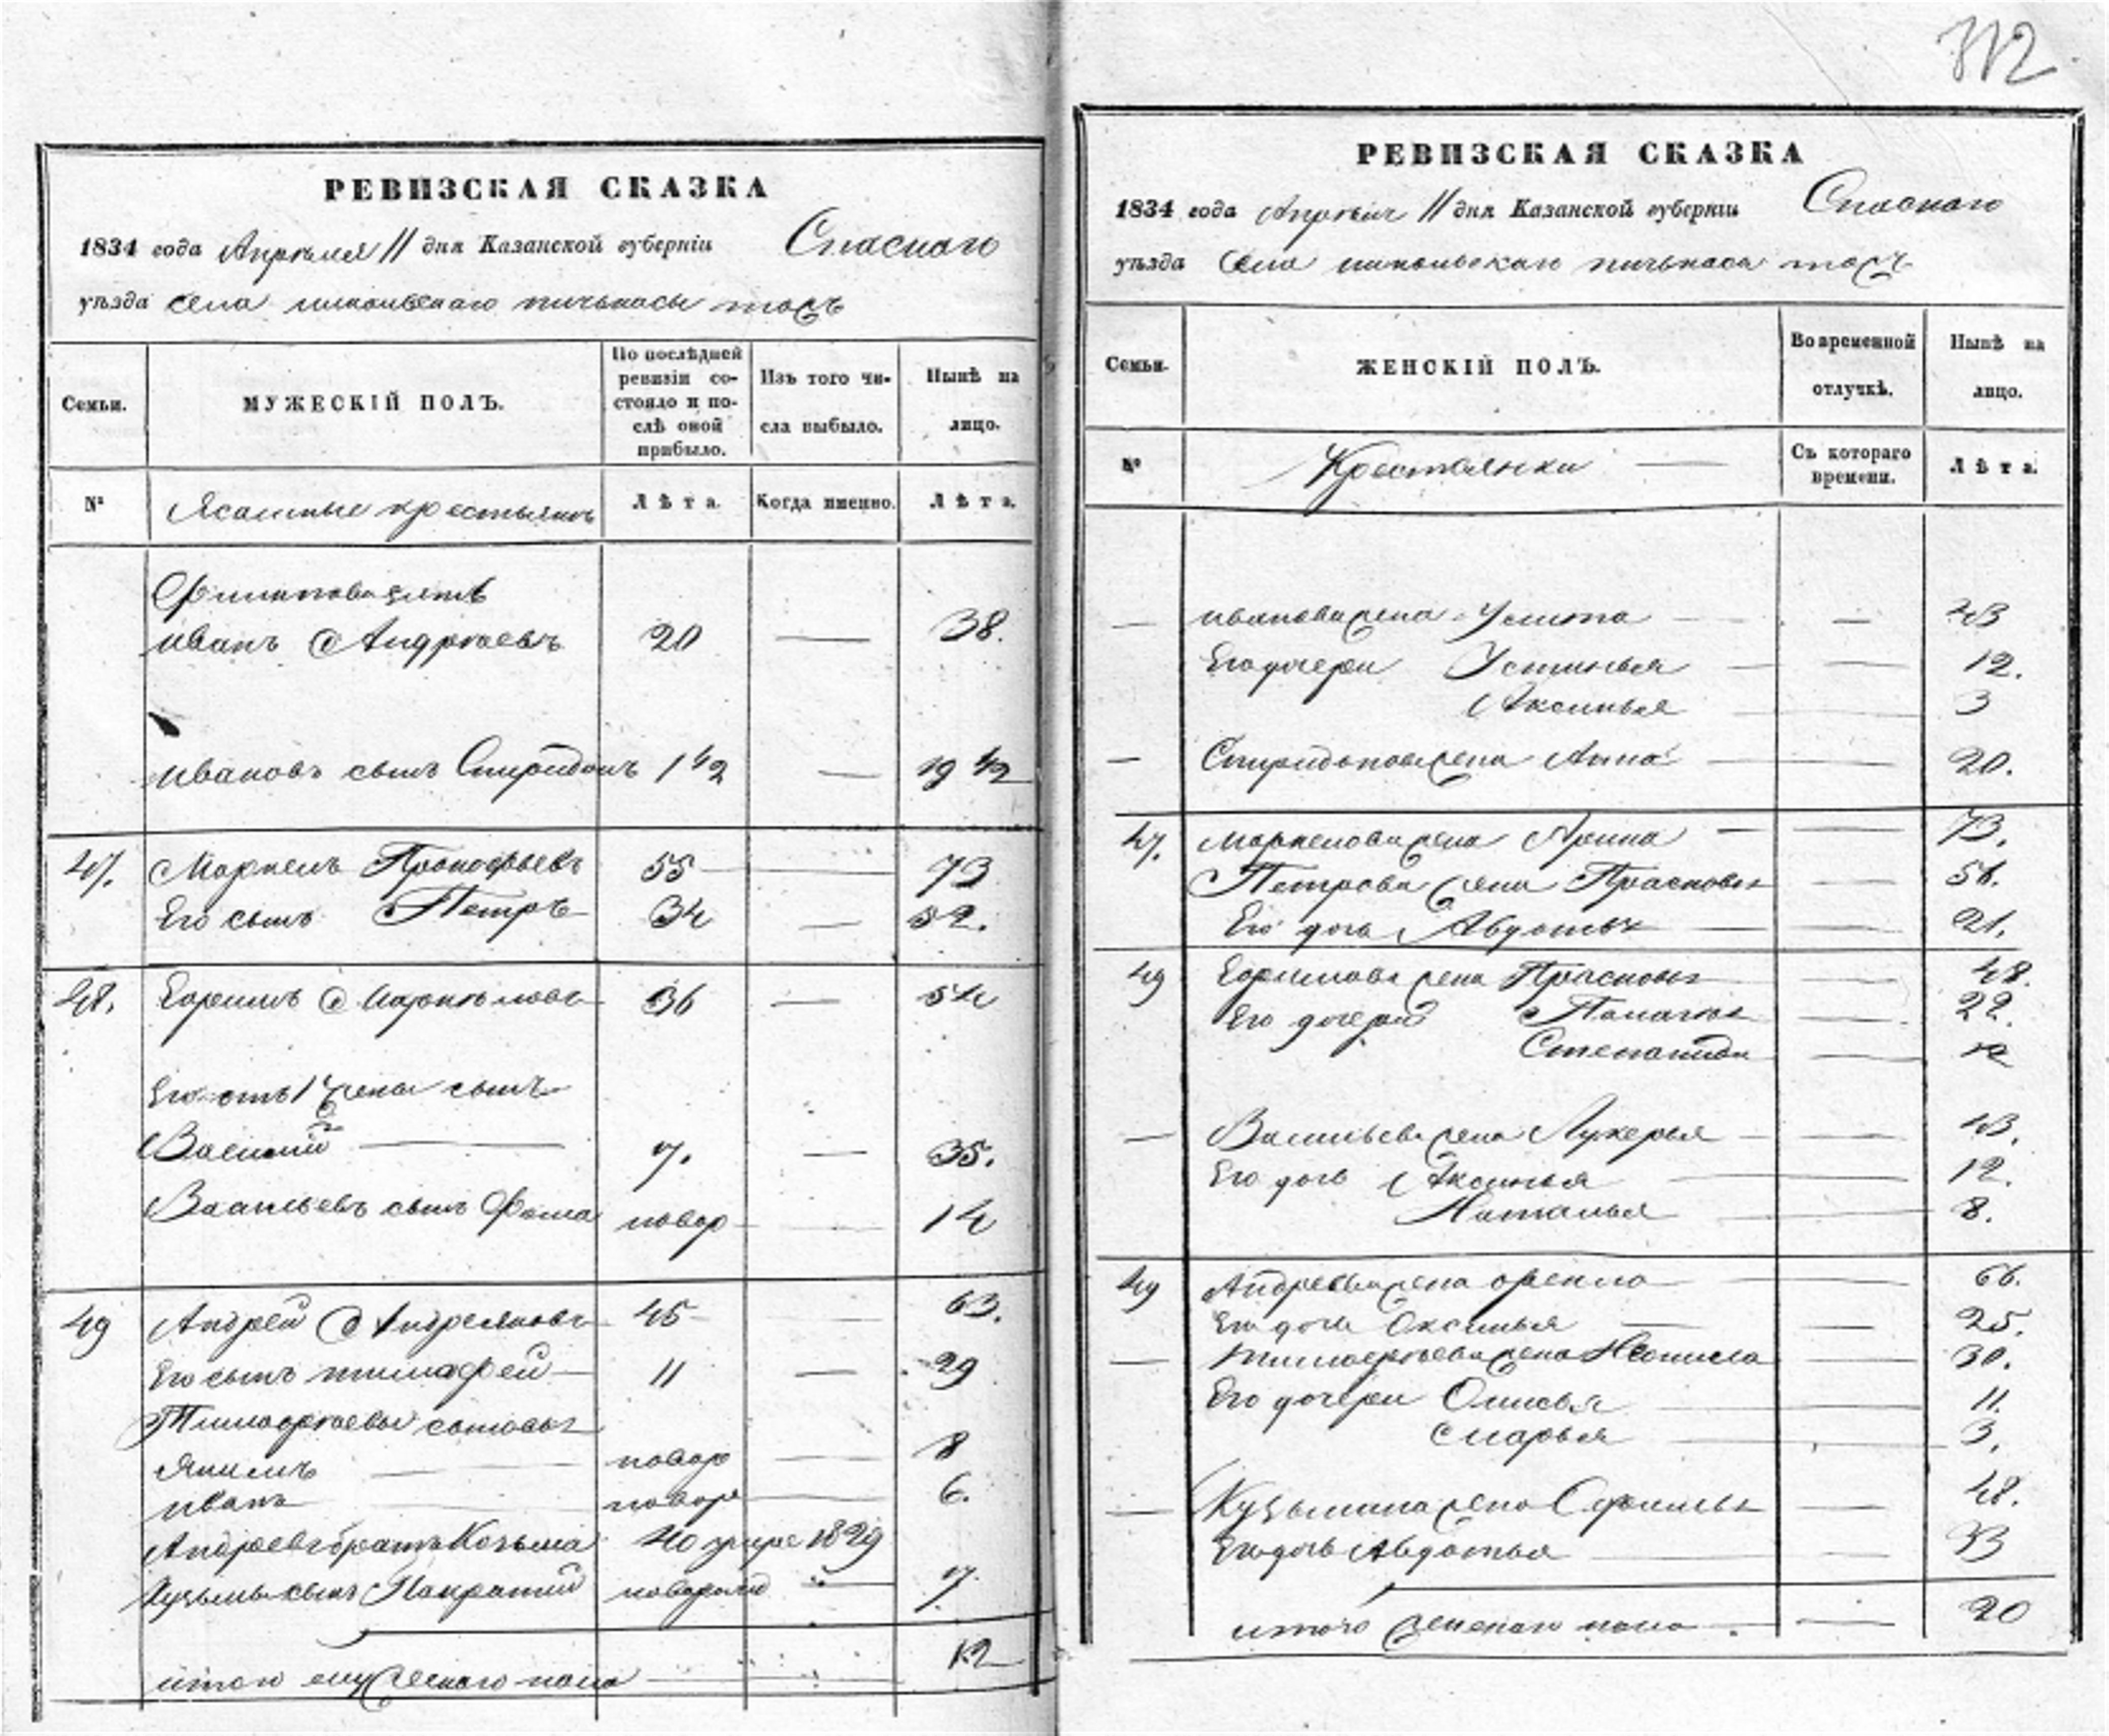 312
РЕВИЗСКАЯ СКАЗКА
1834 года Апреля 11 дня Казанской губерніи Спаскаго
уѣзда села
МУЖЕСКІЙ ПОЛЪ.
Семьи.
По послѣдней ревизіи состояло и послѣ оной прибыло.
Изъ того числа выбыло.
Нынѣ на лицо.
№
Ясашные крестьяне
Лѣта.
Когда именно.
Лѣта.
Филипова зять
Иванъ Андреевъ 20 — 38.
Ивановъ сынъ Спиридонъ 1 1/2 — 19 1/2
47. Маркелъ Прокофьевъ 55 — 73
Его сынъ Петръ 34 — 52.
48. Ефимъ Маркеловъ 36 — 54
Его отъ 1й жены сынъ
Василий — 7. — 35.
Васильевъ сынъ Фома новор — 14
49 Андрей Андреяновъ 45 — 63.
Его сынъ тимофей — 11 — 29
Тимофеевы сыновья
Якимъ — новор — 8
иванъ — новор — 6.
Андреевъ братъ Козьма 40 умре 1829
Кузьмы сынъ Панкратий новорож — 7.
итого мужескаго пола — 12
РЕВИЗСКАЯ СКАЗКА
1834 года Апреля 11 дня Казанской губерніи Спаскаго
уѣзда Села
Семьи.
ЖЕНСКІЙ ПОЛЪ.
Во временной отлучкѣ.
Нынѣ на лицо.
№
Крестьянки —
Съ котораго времени.
Лѣта.
— Иванова жена Улита — 43
Его дочери Устинья — 12.
Аксинья — 3
— Спиридонова жена Анна — 20.
47. Маркелова жена Арина — 73.
Петрова жена Прасковья — 56.
Его дочь Авдотья — 21.
49 Ефимова жена Прасковья — 48.
Его дочери Палагея — 22.
Степанида —
— Васильева жена Лукерья — 43.
Его дочь Аксинья — 12.
Наталья — 8.
49 Андреева жена Фекла — 66.
Его дочь Оксинья — 25.
— Тимофеева жена — 30.
Его дочери — 11.
Марья — 3.
— Кузьмина жена Офимья — 48.
Его дочь Авдотья — 33
итого женскаго пола — 20